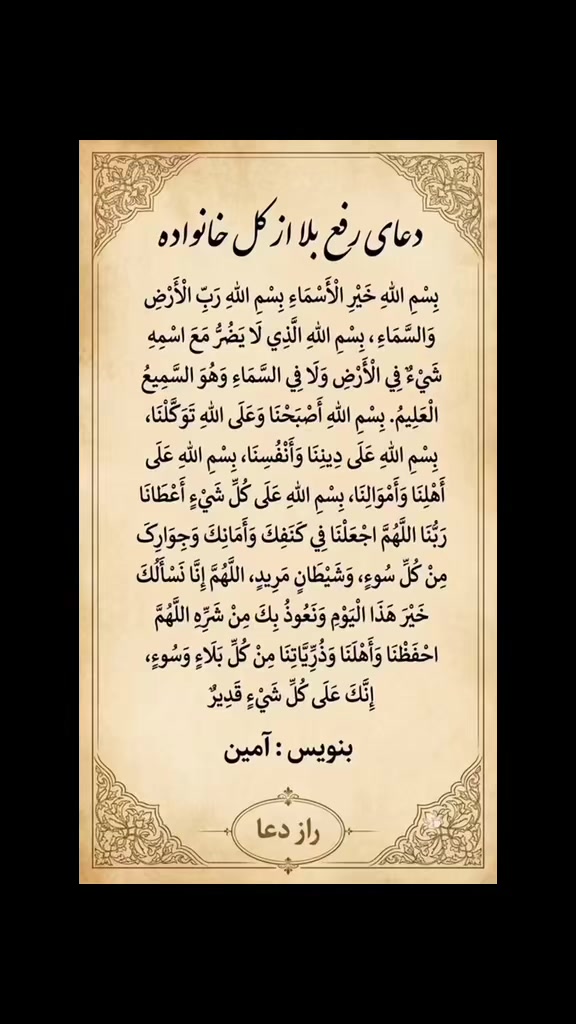 دعای رفع بلا از کل خانواده
بِسْمِ اللهِ خَيْرِ الْأَسْمَاءِ بِسْمِ اللهِ رَبِّ الْأَرْضِ
وَالسَّمَاءِ، بِسْمِ اللهِ الَّذِي لَا يَضُرُّ مَعَ اسْمِهِ
شَيْءٌ فِي الْأَرْضِ وَلَا فِي السَّمَاءِ وَهُوَ السَّمِيعُ
الْعَلِيمُ. بِسْمِ اللهِ أَصْبَحْنَا وَعَلَى اللهِ تَوَكَّلْنَا،
بِسْمِ اللهِ عَلَى دِينِنَا وَأَنْفُسِنَا، بِسْمِ اللهِ عَلَى
أَهْلِنَا وَأَمْوَالِنَا، بِسْمِ اللهِ عَلَى كُلِّ شَيْءٍ أَعْطَانَا
رَبُّنَا اللَّهُمَّ اجْعَلْنَا فِي كَنَفِكَ وَأَمَانِكَ وَجِوَارِكَ
مِنْ كُلِّ سُوءٍ، وَشَيْطَانٍ مَرِيدٍ، اللَّهُمَّ إِنَّا نَسْأَلُكَ
خَيْرَ هَذَا الْيَوْمِ وَنَعُوذُ بِكَ مِنْ شَرِّهِ اللَّهُمَّ
احْفَظْنَا وَأَهْلَنَا وَذُرِّيَّاتِنَا مِنْ كُلِّ بَلَاءٍ وَسُوءٍ،
إِنَّكَ عَلَى كُلِّ شَيْءٍ قَدِيرٌ
بنویس : آمین
راز دعا